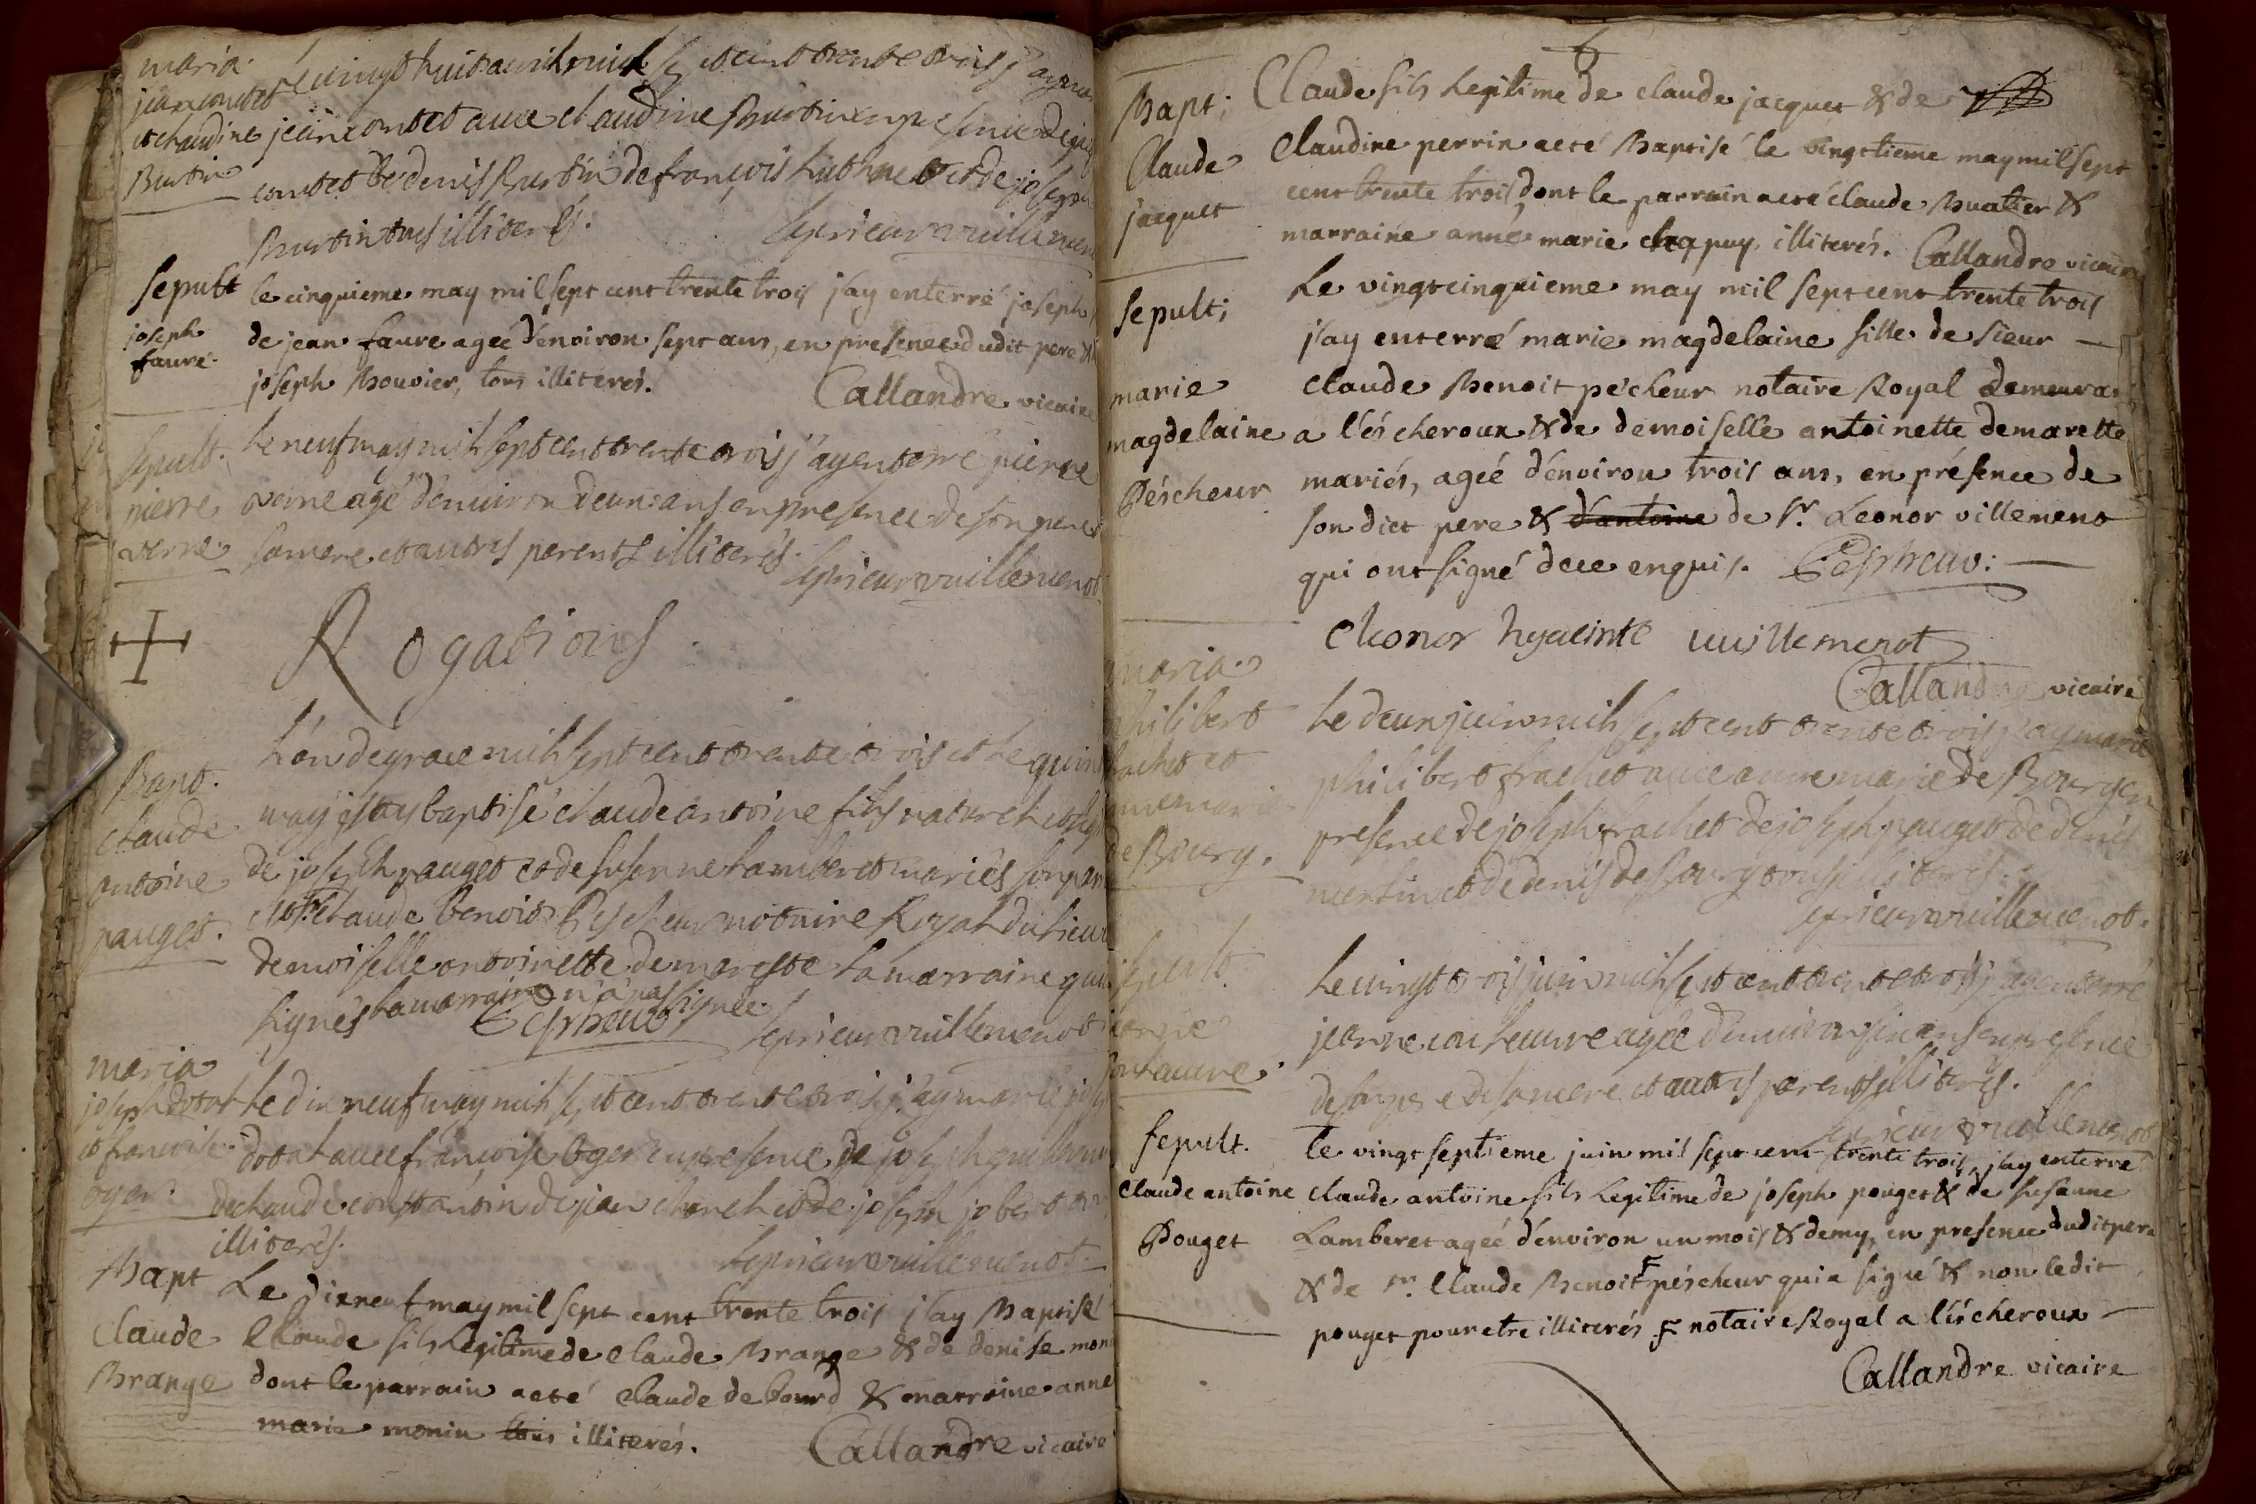 maria.
jean contet
et claudine
Burtin
Le vingt huit avril mil sept cent trente trois j'ay
jean contet avec claudine Burtin en presence de
contet de denis Burtin de françois et de joseph
Burtin tous illiterés.
Leprieur vuillemenot
sepult
joseph
faure.
le cinquieme may mil sept cent trente trois j'ay enterré joseph
de jean faure ageé d'environ sept ans, en presence dudit pere &
joseph Bouvier, tous illiterés.
Callandre vicaire
sepult.
pierre
verne.
Le neuf may mil sept cent trente trois j'ay enterré pierre
verne agé d'environ deux ans en presence de son pere et
sa mere et autres parents illiterés.
Leprieur vuillemenot
Rogations.
Bapt.
claude
antoine
pauget.
L'an de grace mil sept cent trente trois et le
may j'ay baptisé claude antoine fils naturel et
de joseph pauget et de susanne Lamberet mariés son
est sr claude Benoit Pescheur notaire Royal du lieu
demoiselle antoinette demarette la marraine
signés la marraine n'a pas signée.
Pescheur
Leprieur vuillemenot
maria
joseph dotal
et francoise
oger.
Le dix neuf may mil sept cent trente trois j'ay marié
dotal avec francoise oger en presence de joseph
de claude constantin de jean et de joseph jobert
illiterés.
Leprieur vuillemenot.
Bapt
Claude
Brange
Le dixneuf may mil sept cent trente trois j'ay Baptisé
Claude fils Legitime de claude Brange & de denise
dont le parrain a eté claude de bourd & marraine anne
marie monin tous illiterés.
Callandre vicaire
Bapt;
Claude
jacquet
Claude fils Legitime de claude jacquet & de
Claudine perrin a eté Baptisé le vingtieme may mil sept
cent trente trois, dont le parrain a eté claude Buatier &
marraine anne marie chapuy, illiterés. Callandre vicaire
sepult;
marie
magdelaine
Péscheur
Le vingtcinquieme may mil sept cent trente trois
j'ay enterré marie magdelaine fille de sieur
claude Benoit pécheur notaire Royal demeurant
a l'éscheroux & de demoiselle antoinette demarette
mariés, ageé d'environ trois ans, en présence de
son dict pere & d'antoine de sr. Leonor villemenot
qui ont signé de ce enquis. Pescheur:
eleonor hyacinte vuillemenot
Callandre vicaire
maria.
philibert
frachet et
annemarie
de Bourg.
Le deux juin mil sept cent trente trois j'ay marié
philibert frachet avec anne marie de Bourg en
presence de joseph frachet de joseph pauget de
et de denis de Bourg tous illiterés.
Leprieur vuillemenot.
sepult.
Le vingt trois juin mil sept cent trente trois j'ay enterré
jeanne agée d'environ six ans en presence
de son pere de sa mere et autres parents illiterés.
Leprieur vuillemenot
sepult.
Claude antoine
Pouget
le vingt septieme juin mil sept cent trente trois, j'ay enterré
claude antoine fils Legitime de joseph pouget & de susanne
Lamberet ageé d'environ un mois & demy, en presence dudit pere
& de sr. Claude Benoit péscheur qui a signé & non ledit
pouget pour etre illiterés notaire Royal a l'éscheroux
Callandre vicaire